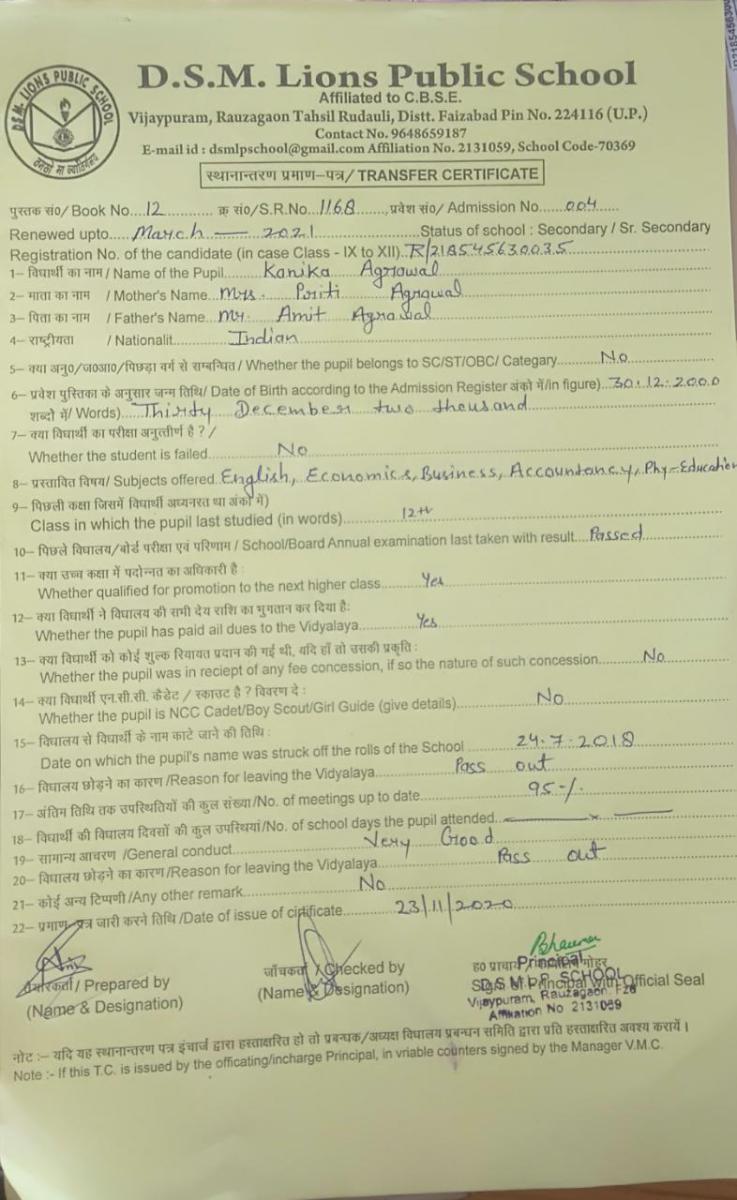 D.S.M. LIONS PUBLIC SCHOOL
D.S.M. Lions Public School
Affiliated to C.B.S.E.
Vijaypuram, Rauzagaon Tahsil Rudauli, Distt. Faizabad Pin No. 224116 (U.P.)
Contact No. 9648659187
E-mail id : dsmlpschool@gmail.com Affiliation No. 2131059, School Code-70369
तमसो मा ज्योतिर्गमय
स्थानान्तरण प्रमाण-पत्र/ TRANSFER CERTIFICATE
पुस्तक सं0/ Book No. 12 क्र सं0/S.R.No. 1168 प्रवेश सं0/ Admission No. 004
Renewed upto March — 2021 Status of school : Secondary / Sr. Secondary
Registration No. of the candidate (in case Class - IX to XII) R/218545630035
1– विद्यार्थी का नाम / Name of the Pupil Kanika Agrawal
2– माता का नाम / Mother's Name Mrs. Priti Agrawal
3– पिता का नाम / Father's Name Mr. Amit Agrawal
4– राष्ट्रीयता / Nationalit Indian
5– क्या अनु0/ज0आ0/पिछड़ा वर्ग से सम्बन्धित / Whether the pupil belongs to SC/ST/OBC/ Categary No
6– प्रवेश पुस्तिका के अनुसार जन्म तिथि/ Date of Birth according to the Admission Register अंको में/in figure) 30.12.2000
शब्दों में/ Words) Thirty December two thousand
7– क्या विद्यार्थी का परीक्षा अनुत्तीर्ण है ? /
Whether the student is failed No
8– प्रस्तावित विषय/ Subjects offered English, Economics, Business, Accountancy, Phy-Education
9– पिछली कक्षा जिसमें विद्यार्थी अध्यनरत था अंकों में)
Class in which the pupil last studied (in words) 12th
10– पिछले विद्यालय/बोर्ड परीक्षा एवं परिणाम / School/Board Annual examination last taken with result Passed
11– क्या उच्च कक्षा में पदोन्नत का अधिकारी है :
Whether qualified for promotion to the next higher class Yes
12– क्या विद्यार्थी ने विद्यालय की सभी देय राशि का भुगतान कर दिया है:
Whether the pupil has paid ail dues to the Vidyalaya Yes
13– क्या विद्यार्थी को कोई शुल्क रियायत प्रदान की गई थी, यदि हाँ तो उसकी प्रकृति :
Whether the pupil was in reciept of any fee concession, if so the nature of such concession No
14– क्या विद्यार्थी एन.सी.सी. कैडेट / स्काउट है ? विवरण दे :
Whether the pupil is NCC Cadet/Boy Scout/Girl Guide (give details) No
15– विद्यालय से विद्यार्थी के नाम काटे जाने की तिथि :
Date on which the pupil's name was struck off the rolls of the School 24.7.2018
16– विद्यालय छोड़ने का कारण /Reason for leaving the Vidyalaya Pass out
17– अंतिम तिथि तक उपस्थितियों की कुल संख्या/No. of meetings up to date 95-/.
18– विद्यार्थी की विद्यालय दिवसों की कुल उपस्थियां/No. of school days the pupil attended — x —
19– सामान्य आचरण /General conduct Very Good
20– विद्यालय छोड़ने का कारण/Reason for leaving the Vidyalaya Pass out
21– कोई अन्य टिप्पणी /Any other remark No
22– प्रमाण पत्र जारी करने तिथि /Date of issue of cirtificate 23/11/2020
/ Prepared by
(Name & Designation)
जाँचकर्ता / Checked by
(Name & Designation)
Sign of Principal with Official Seal
Principal
D.S.M.L.P. SCHOOL
Vijaypuram, Rauzagaon Fzd
Affiliation No 2131059
नोट :– यदि यह स्थानान्तरण पत्र इंचार्ज द्वारा हस्ताक्षरित हो तो प्रबन्धक/अध्यक्ष विद्यालय प्रबन्धन समिति द्वारा प्रति हस्ताक्षरित अवश्य करायें ।
Note :- If this T.C. is issued by the officating/incharge Principal, in vriable counters signed by the Manager V.M.C.